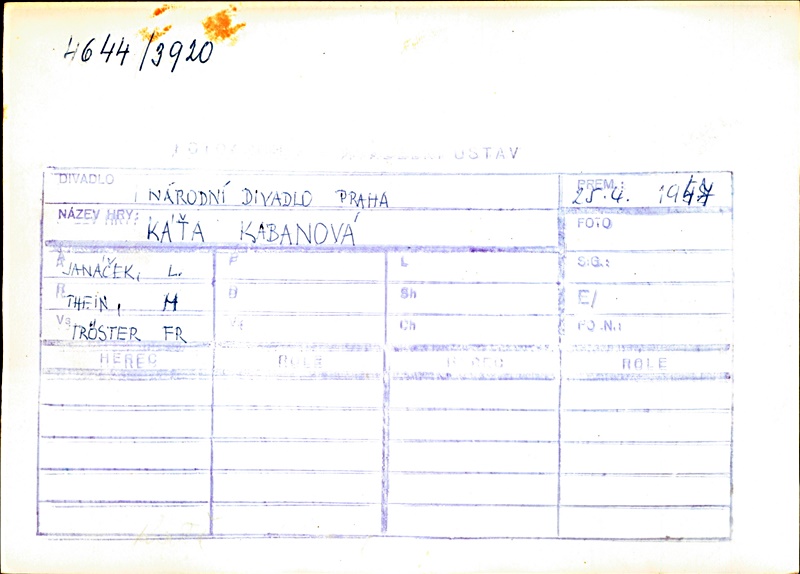 4644/3920
ÚSTAV
DIVADLO NÁRODNÍ DIVADLO PRAHA PREM.: 25.4. 1947
NÁZEV HRY: KÁŤA KABANOVÁ FOTO
A JANÁČEK, L. P L SIG.:
R THEIN, H D Sh E/
Vs TRÖSTER FR Ch FO.N.:
HEREC ROLE HEREC ROLE